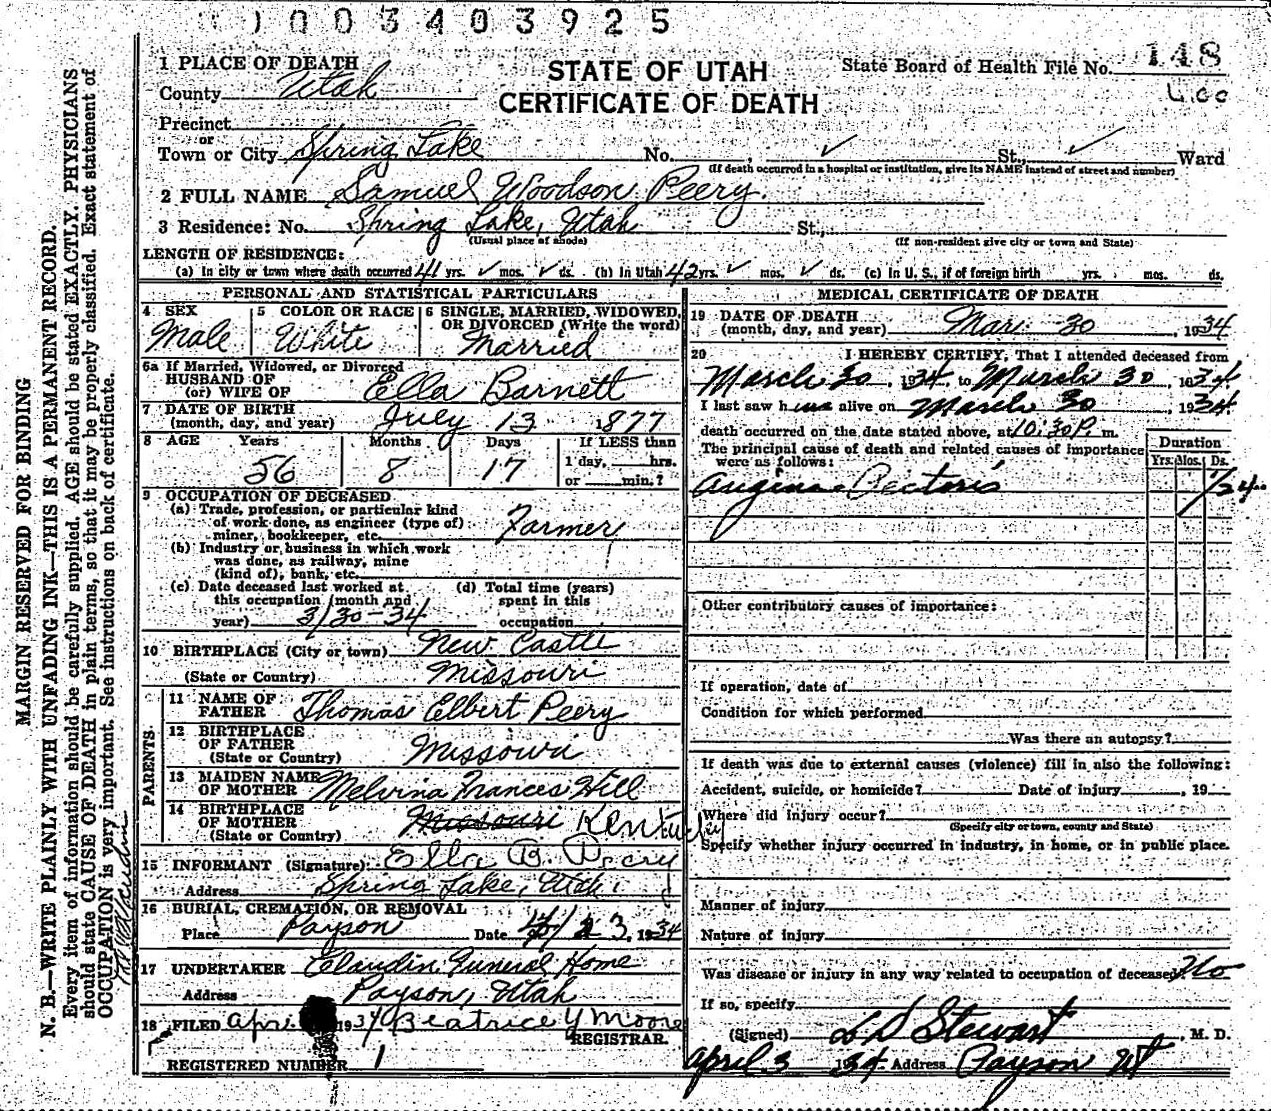 1003403925
STATE OF UTAH
CERTIFICATE OF DEATH
State Board of Health File No. 148
1 PLACE OF DEATH
County Utah
Precinct
or
Town or City Spring Lake No. , St., Ward
(If death occurred in a hospital or institution, give its NAME instead of street and number)
2 FULL NAME Samuel Woodson Peery.
3 Residence: No. Spring Lake, Utah St.,
(Usual place of abode) (If non-resident give city or town and State)
LENGTH OF RESIDENCE:
(a) In city or town where death occurred 41 yrs. mos. ds. (b) In Utah 42 yrs. mos. ds. (c) In U. S., if of foreign birth yrs. mos. ds.
PERSONAL AND STATISTICAL PARTICULARS
4 SEX Male
5 COLOR OR RACE White
6 SINGLE, MARRIED, WIDOWED, OR DIVORCED (Write the word) Married
6a If Married, Widowed, or Divorced
HUSBAND OF
(or) WIFE OF Ella Barnett
7 DATE OF BIRTH
(month, day, and year) July 13 1877
8 AGE Years Months Days If LESS than
56 8 17 1 day, hrs.
or min.?
9 OCCUPATION OF DECEASED
(a) Trade, profession, or particular kind
of work done, as engineer (type of)
miner, bookkeeper, etc. Farmer
(b) Industry or business in which work
was done, as railway, mine
(kind of), bank, etc.
(c) Date deceased last worked at
this occupation (month and
year) 3/30-34
(d) Total time (years)
spent in this
occupation
10 BIRTHPLACE (City or town) New Castle
(State or Country) Missouri
PARENTS
11 NAME OF
FATHER Thomas Elbert Peery
12 BIRTHPLACE
OF FATHER
(State or Country) Missouri
13 MAIDEN NAME
OF MOTHER Melvina Frances Hill
14 BIRTHPLACE
OF MOTHER Missouri Kentucky
(State or Country)
15 INFORMANT (Signature) Ella B. Peery
Address Spring Lake, Utah.
16 BURIAL, CREMATION, OR REMOVAL
Place Payson Date 1934
17 UNDERTAKER Claudin Funeral Home
Address Payson, Utah
18 FILED Apr. 1934 Beatrice Y Moore
REGISTRAR.
REGISTERED NUMBER 1
MEDICAL CERTIFICATE OF DEATH
19 DATE OF DEATH
(month, day, and year) Mar. 30, 1934
20 I HEREBY CERTIFY, That I attended deceased from
March 30, 1934 to March 30, 1934
I last saw him alive on March 30, 1934
death occurred on the date stated above, at 10:30 P. m.
The principal cause of death and related causes of importance
were as follows:
Duration
Yrs. Mos. Ds.
Angina Pectoris
Other contributory causes of importance:
If operation, date of
Condition for which performed
Was there an autopsy?
If death was due to external causes (violence) fill in also the following:
Accident, suicide, or homicide? Date of injury , 19
Where did injury occur?
(Specify city or town, county and State)
Specify whether injury occurred in industry, in home, or in public place.
Manner of injury
Nature of injury
Was disease or injury in any way related to occupation of deceased? No
If so, specify
(Signed) L D Stewart, M. D.
April 3 1934 Address Payson Ut
MARGIN RESERVED FOR BINDING
N. B.—WRITE PLAINLY WITH UNFADING INK—THIS IS A PERMANENT RECORD.
Every item of information should be carefully supplied. AGE should be stated EXACTLY. PHYSICIANS
should state CAUSE OF DEATH in plain terms, so that it may be properly classified. Exact statement of
OCCUPATION is very important. See instructions on back of certificate.